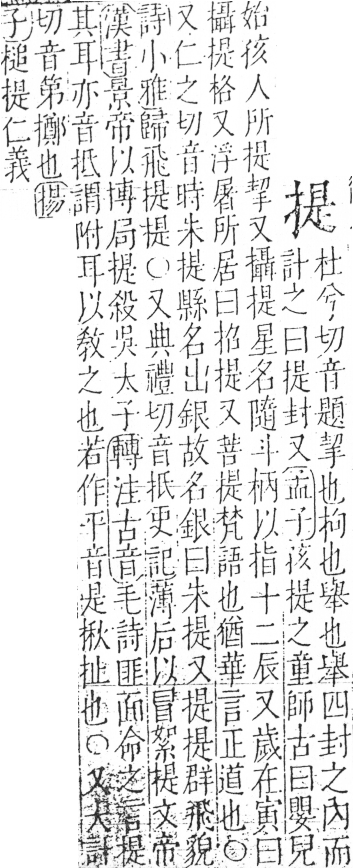 提
杜兮切音題挈也枸也舉也舉四封之內而
計之曰提封又孟子孩提之童師古曰嬰兒
始孩人所提挈又攝提星名隨斗柄以指十二辰又歲在寅曰
攝提格又浮屠所居曰招提又菩提梵語也猶華言正道也〇
又仁之切音時朱提縣名出銀故名銀曰朱提又提提群飛貌
詩小雅歸飛提提〇又典禮切音抵史記薄后以冒絮提文帝
漢書景帝以博局提殺吳太子轉注古音毛詩匪面命之言提
其耳亦音抵謂附耳以教之也若作平音是揪扯也〇又大計
切音第擲也揚
子槌提仁義